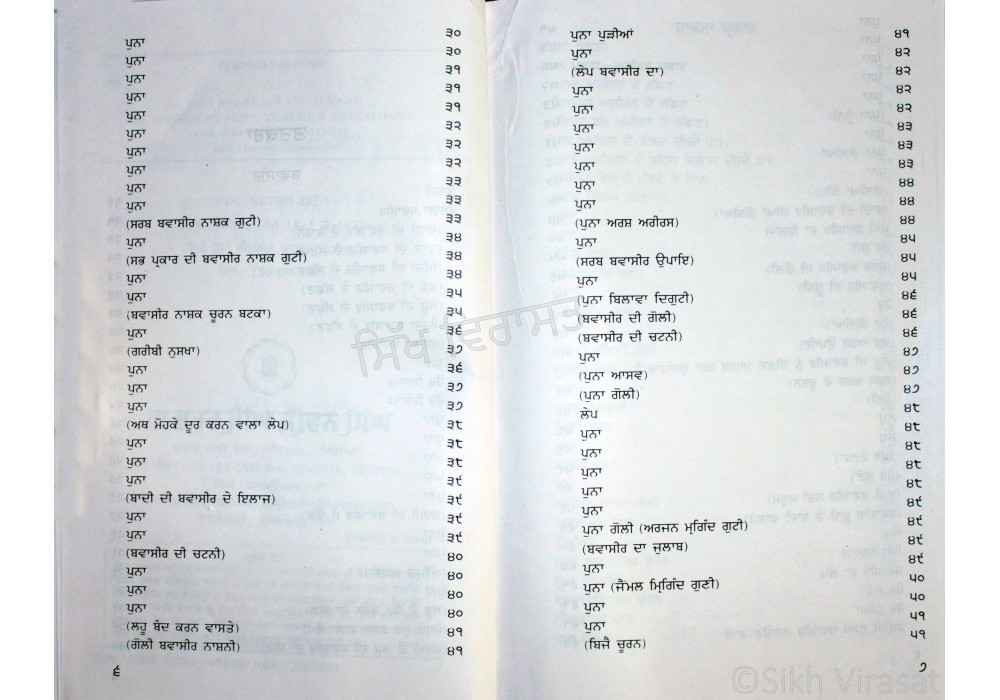 ਪੁਨਾ ੩੦
ਪੁਨਾ ੩੦
ਪੁਨਾ ੩੧
ਪੁਨਾ ੩੧
ਪੁਨਾ ੩੧
ਪੁਨਾ ੩੨
ਪੁਨਾ ੩੨
ਪੁਨਾ ੩੨
ਪੁਨਾ ੩੩
ਪੁਨਾ ੩੩
(ਸਰਬ ਬਵਾਸੀਰ ਨਾਸ਼ਕ ਗੁਟੀ) ੩੩
ਪੁਨਾ ੩੪
(ਸਭ ਪ੍ਰਕਾਰ ਦੀ ਬਵਾਸੀਰ ਨਾਸ਼ਕ ਗੁਟੀ) ੩੪
ਪੁਨਾ ੩੪
ਪੁਨਾ ੩੫
(ਬਵਾਸੀਰ ਨਾਸ਼ਕ ਚੂਰਨ ਬਟਕਾ) ੩੫
ਪੁਨਾ ੩੬
(ਗਰੀਬੀ ਨੁਸਖਾ) ੩੭
ਪੁਨਾ ੩੬
ਪੁਨਾ ੩੭
ਪੁਨਾ ੩੭
(ਅਥ ਮੋਹਕੇ ਦੂਰ ਕਰਨ ਵਾਲਾ ਲੇਪ) ੩੮
ਪੁਨਾ ੩੮
ਪੁਨਾ ੩੮
ਪੁਨਾ ੩੯
(ਬਾਦੀ ਦੀ ਬਵਾਸੀਰ ਦੇ ਇਲਾਜ) ੩੯
ਪੁਨਾ ੩੯
ਪੁਨਾ ੩੯
(ਬਵਾਸੀਰ ਦੀ ਚਟਨੀ) ੪੦
ਪੁਨਾ ੪੦
ਪੁਨਾ ੪੦
ਪੁਨਾ ੪੦
(ਲਹੂ ਬੰਦ ਕਰਨ ਵਾਸਤੇ) ੪੧
(ਗੋਲੀ ਬਵਾਸੀਰ ਨਾਸ਼ਨੀ) ੪੧
੬
ਪੁਨਾ ਪੁੜੀਆਂ ੪੧
ਪੁਨਾ ੪੨
(ਲੇਪ ਬਵਾਸੀਰ ਦਾ) ੪੨
ਪੁਨਾ ੪੨
ਪੁਨਾ ੪੨
ਪੁਨਾ ੪੩
ਪੁਨਾ ੪੩
ਪੁਨਾ ੪੩
ਪੁਨਾ ੪੪
ਪੁਨਾ ੪੪
(ਪੁਨਾ ਅਰਸ਼ ਅਰੀਰਸ) ੪੪
ਪੁਨਾ ੪੫
(ਸਰਬ ਬਵਾਸੀਰ ਉਪਾਇ) ੪੫
ਪੁਨਾ ੪੫
(ਪੁਨਾ ਬਿਲਾਵਾ ਦਿਗੁਟੀ) ੪੬
(ਬਵਾਸੀਰ ਦੀ ਗੋਲੀ) ੪੬
(ਬਵਾਸੀਰ ਦੀ ਚਟਨੀ) ੪੬
ਪੁਨਾ ੪੭
(ਪੁਨਾ ਆਸਵ) ੪੭
(ਪੁਨਾ ਗੋਲੀ) ੪੭
ਲੇਪ ੪੮
ਪੁਨਾ ੪੮
ਪੁਨਾ ੪੮
ਪੁਨਾ ੪੮
ਪੁਨਾ ੪੮
ਪੁਨਾ ੪੯
ਪੁਨਾ ਗੋਲੀ (ਅਰਜਨ ਮ੍ਰਿਗਿੰਦ ਗੁਟੀ) ੪੯
(ਬਵਾਸੀਰ ਦਾ ਜੁਲਾਬ) ੪੯
ਪੁਨਾ ੪੯
ਪੁਨਾ (ਜੈਮਲ ਮ੍ਰਿਗਿੰਦ ਗੁਣੀ) ੫੦
ਪੁਨਾ ੫੦
ਪੁਨਾ ੫੧
(ਬਿਜੈ ਚੂਰਨ) ੫੧
੭
ਸਿੱਖ ਵਿਰਾਸਤ
©Sikh Virasat